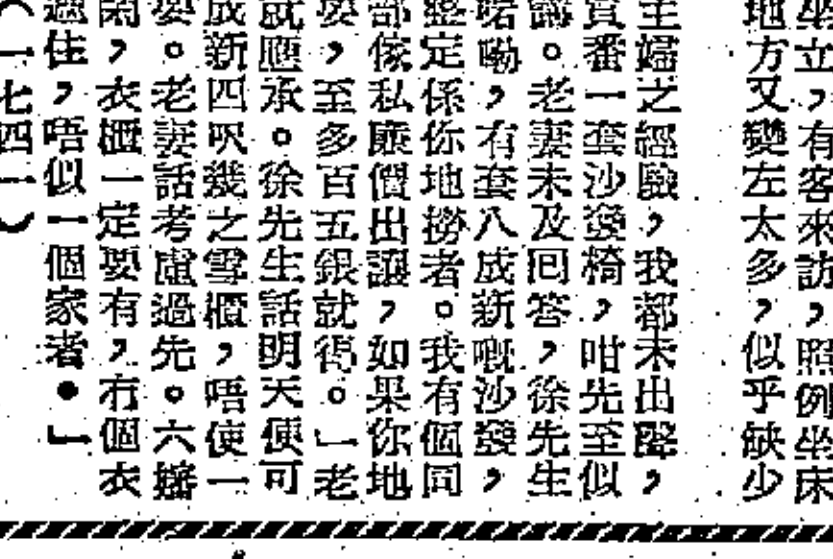 坐立，有客來訪，照例坐床
地方又變左太多，似乎缺少
主婦之經驗，我都未出聲，
買番一套沙發椅，咁先至似
講。老妻未及回答，徐先生
啱嘞，有套八成新嘅沙發，
整定係你地撈者。我有個同
部傢私廉價出讓，如果你地
要，至多百五銀就得。」老
就應承。徐先生話明天便可
成新四呎幾之雪櫃，唔使一
要。老妻話考慮過先。六嬸
閑，衣櫃一定要有，冇個衣
過住，唔似一個家者。」
（一七四一）